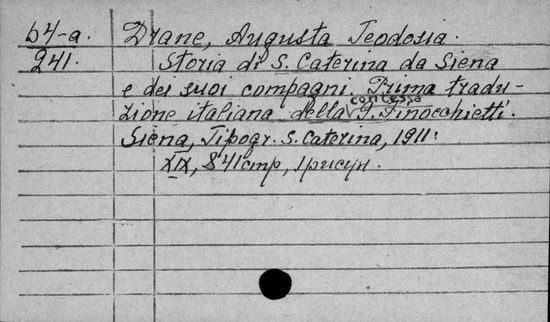 64-a. Drane, Augusta Teodosia.
241. Storia di S. Caterina da Siena
e dei suoi compagni. Prima tradu-
contessa
zione italiana della F. Finocchietti.
Siena, Tipogr. S. Caterina, 1911.
XIX, 841 стр, 1 рисун.